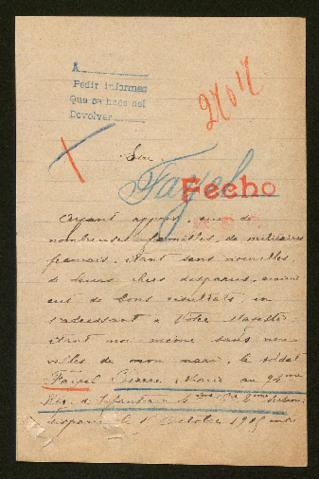 A
Pedir informes
Que se hace del
Devolver
27017
Sire
Fayol
Fecho
Ayant appris, que de
nombreuses familles, de militaires
français, étant sans nouvelles
de leurs chers disparus, avaient
eut de bons résultats, en
s'adressant à Votre Majesté
étant moi même sans nou-
velles de mon mari, le soldat
Fayol Pierre Marie au 98me
Rég. d'Infanterie
disparu le 1r Octobre 1915